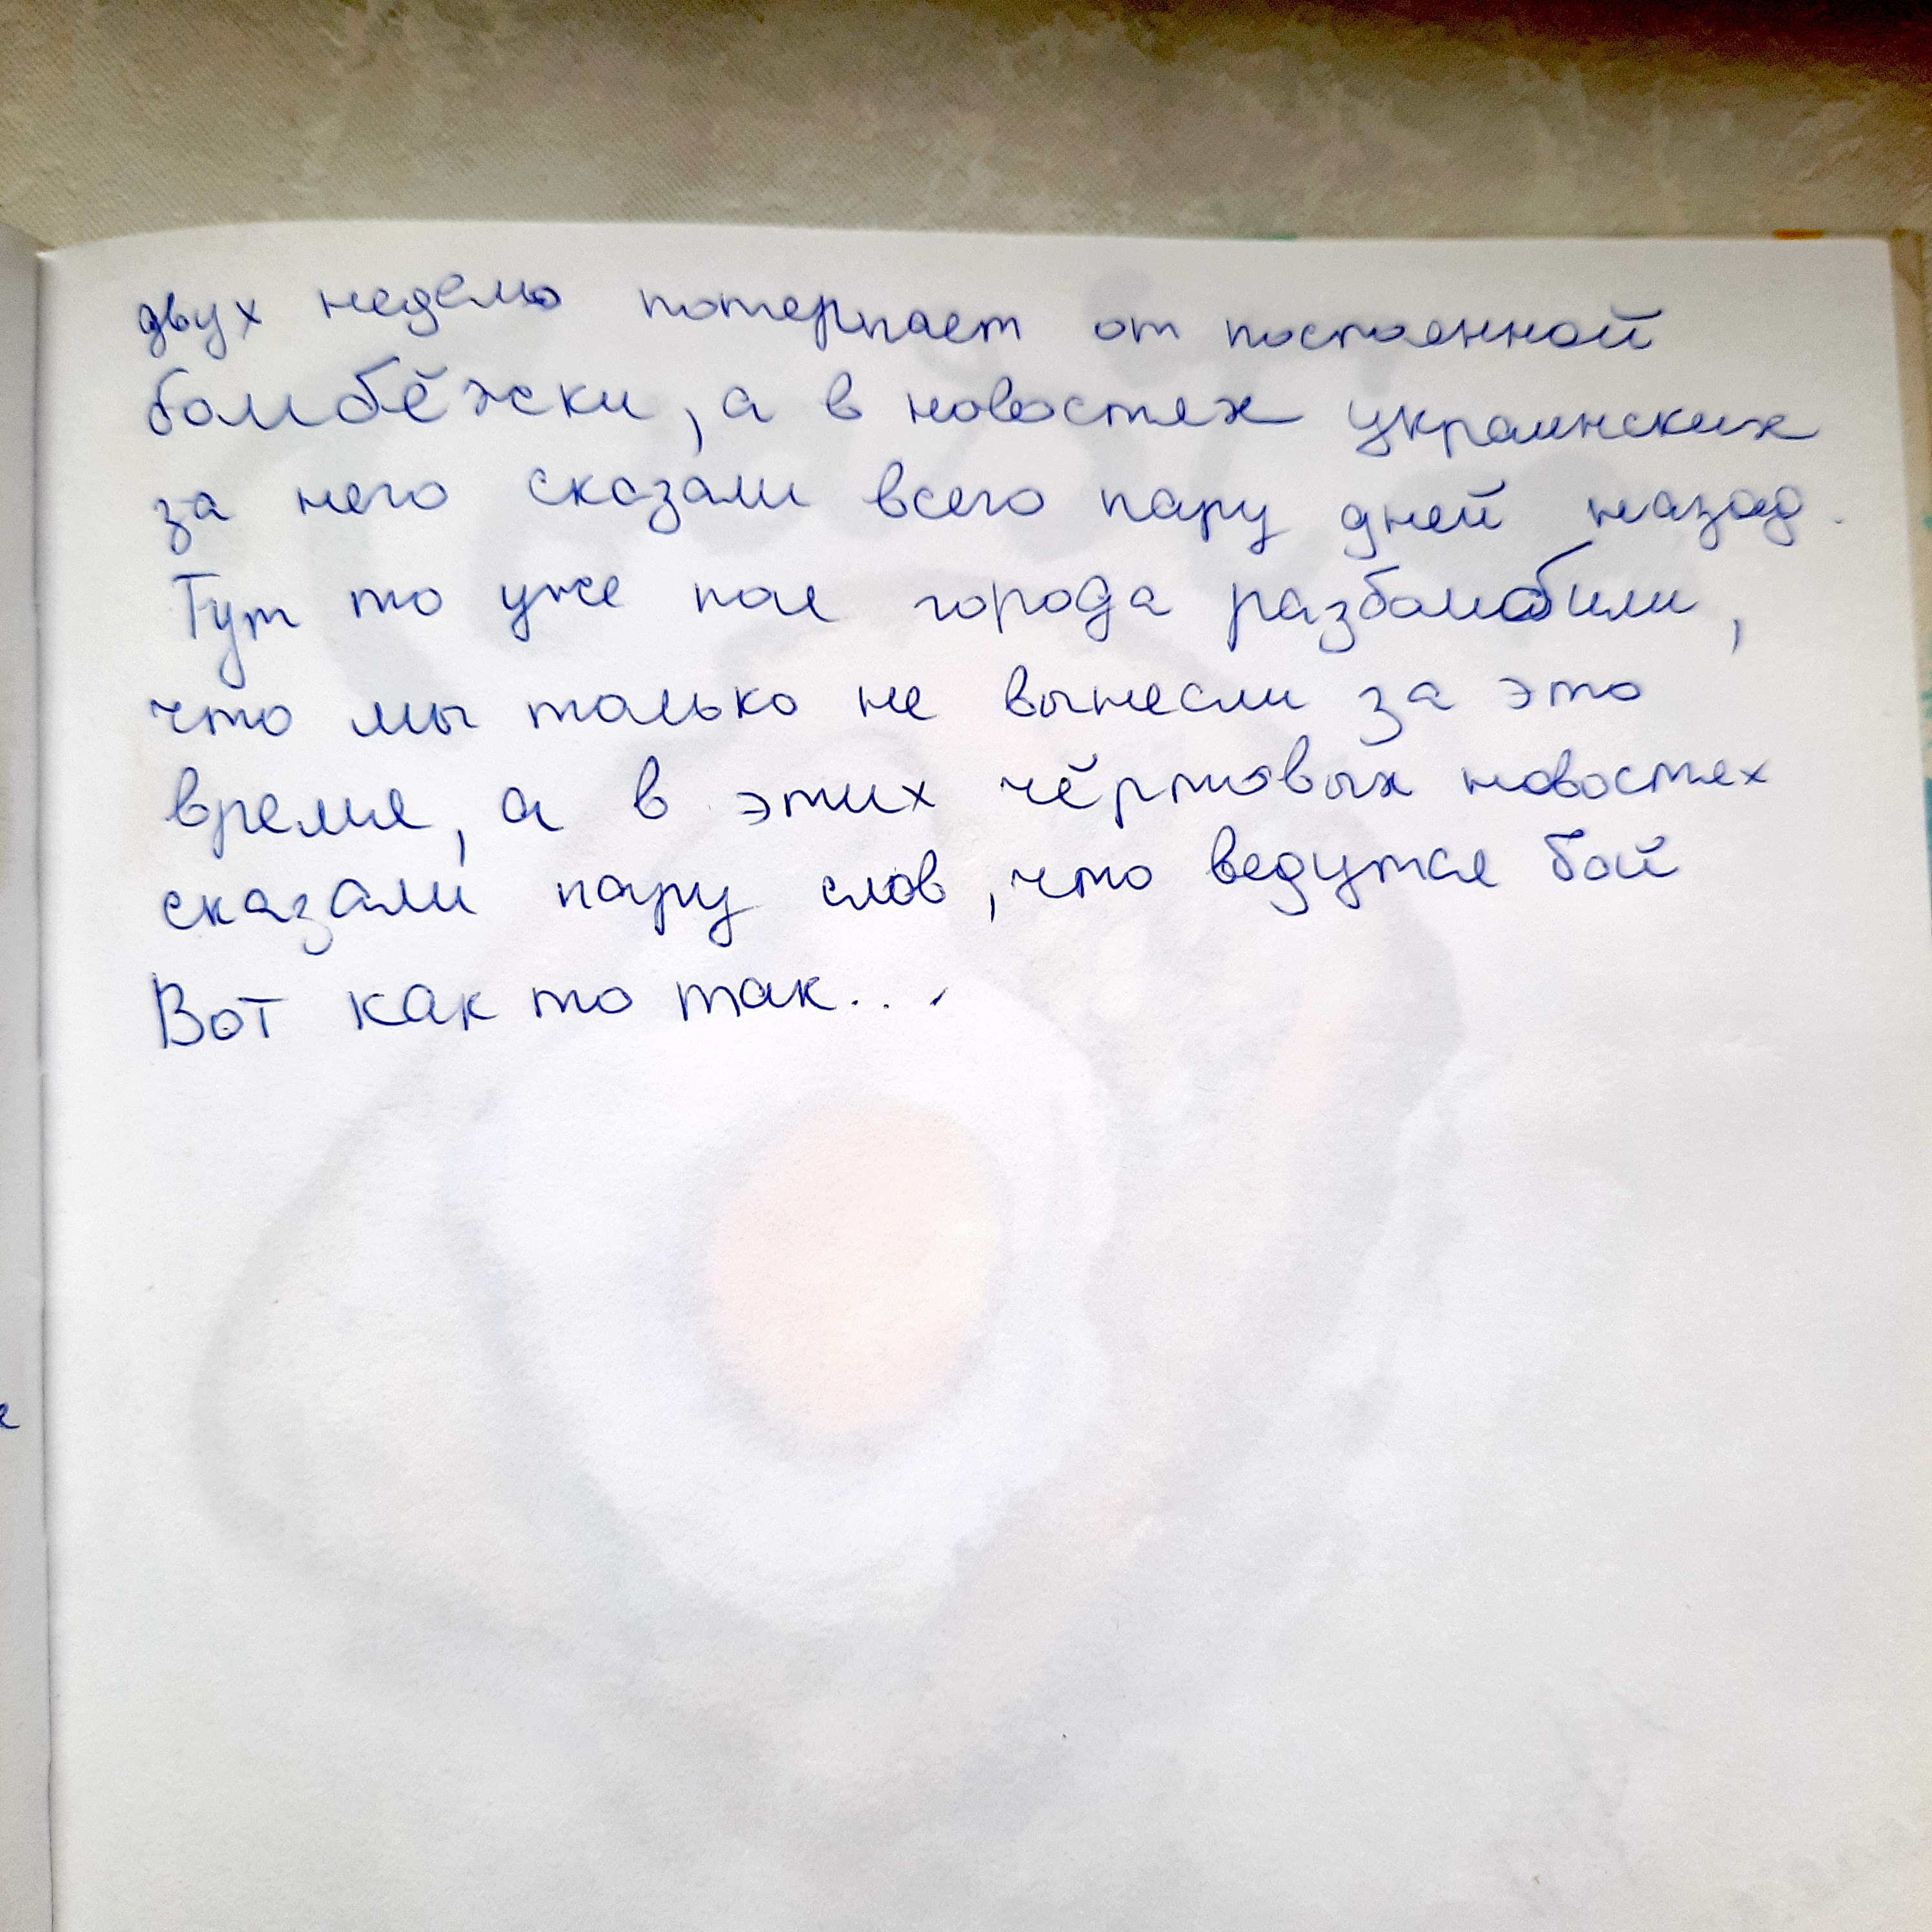 двух недель потерпает от постоянной
бомбёжки, а в новостях украинских
за него сказали всего пару дней назад.
Тут то уже пол города разбомбили,
что мы только не вынесли за это
время, а в этих чёртовых новостях
сказали пару слов, что ведутся бой
Вот как то так...